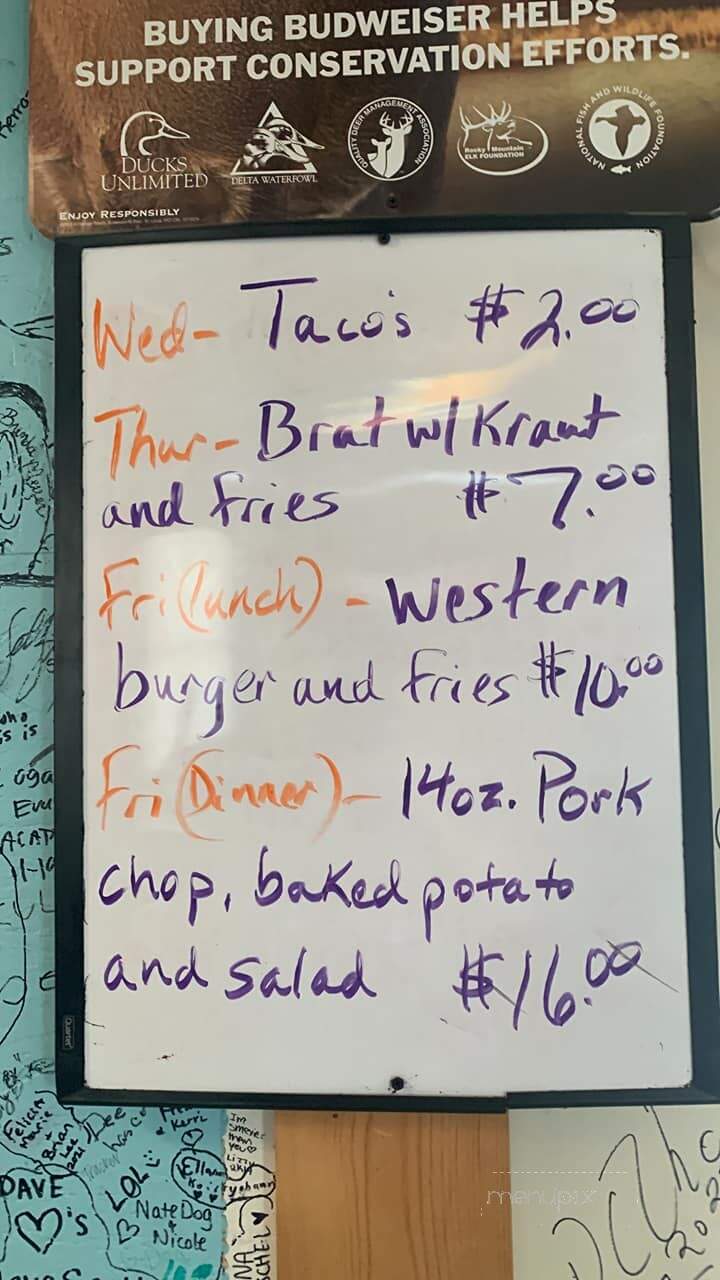 BUYING BUDWEISER HELPS
SUPPORT CONSERVATION EFFORTS.
DUCKS
UNLIMITED
DELTA WATERFOWL
QUALITY DEER MANAGEMENT ASSOCIATION
Rocky Mountain
ELK FOUNDATION
NATIONAL FISH AND WILDLIFE FOUNDATION
ENJOY RESPONSIBLY
Wed- Taco's $2.00
Thur- Brat w/ Kraut
and fries $7.00
Fri (lunch) - Western
burger and fries $10.00
Fri (Dinner) - 14oz. Pork
chop, baked potato
and salad $16.00
Quartet
Felicia
Marie
Brian
Lee
2021
Dee
Kerri
DAVE
♡'s
LOL
NateDog
Nicole
Im
Smeyer
man
you
Lizzy
menupix